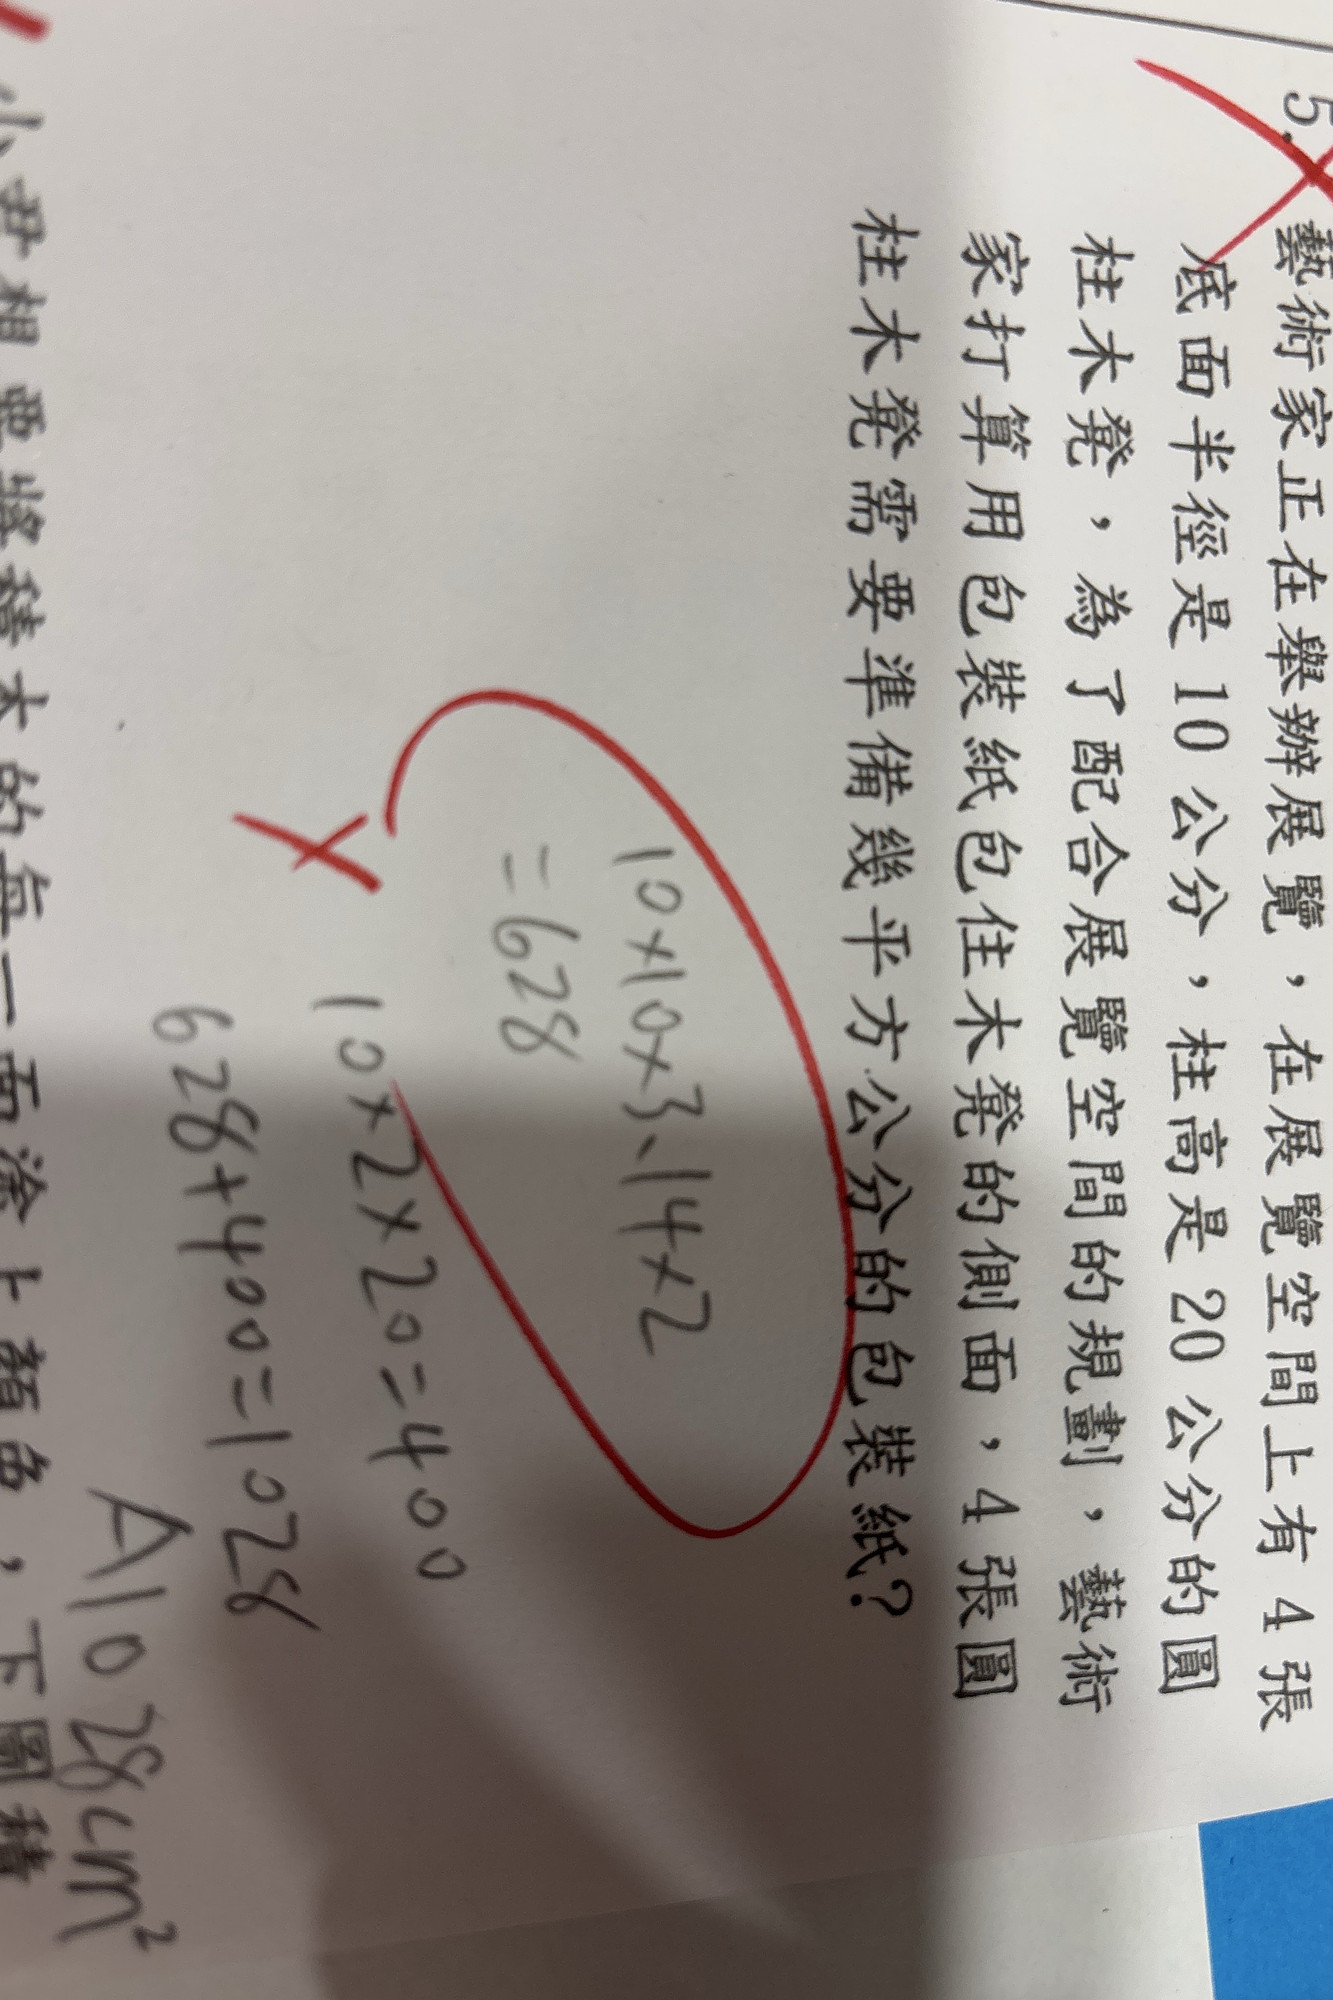 5. 藝術家正在舉辦展覽，在展覽空間上有 4 張
底面半徑是 10 公分，柱高是 20 公分的圓
柱木凳，為了配合展覽空間的規劃，藝術
家打算用包裝紙包住木凳的側面，4 張圓
柱木凳需要準備幾平方公分的包裝紙？
10×10×3.14×2
=628
10×2×20=400
628+400=1028
A1028cm²
小尹想要將積木的每一面塗上顏色，下圖積